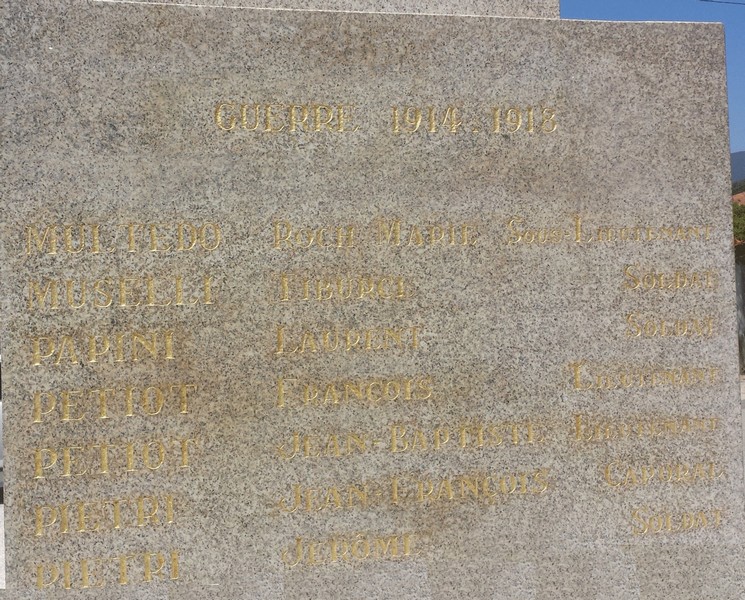 GUERRE 1914-1918
MULTEDO ROCH-MARIE SOUS-LIEUTENANT
MUSELLI TIBURCE SOLDAT
PAPINI LAURENT SOLDAT
PETIOT FRANÇOIS LIEUTENANT
PETIOT JEAN-BAPTISTE LIEUTENANT
PIETRI JEAN-FRANÇOIS CAPORAL
PIETRI JERÔME SOLDAT